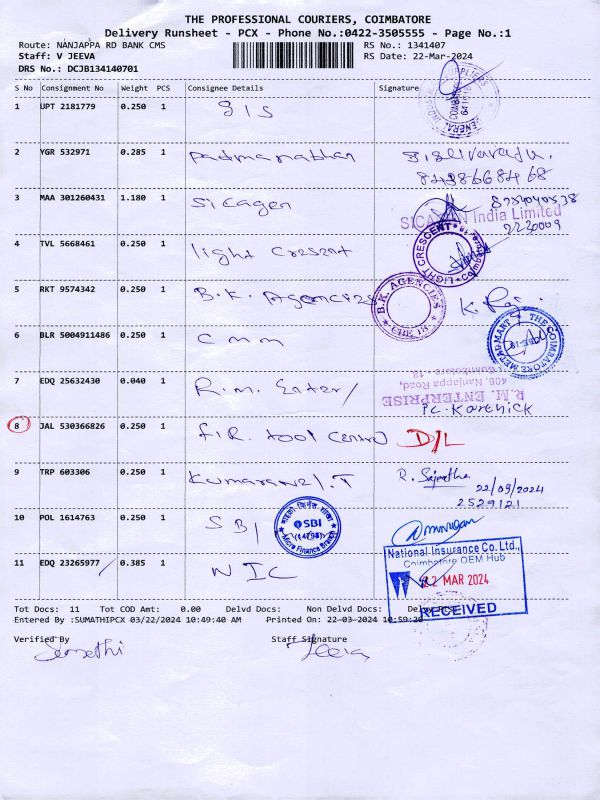 THE PROFESSIONAL COURIERS, COIMBATORE
Delivery Runsheet - PCX - Phone No.:0422-3505555 - Page No.:1
Route: NANJAPPA RD BANK CMS RS No.: 1341407
Staff: V JEEVA RS Date: 22-Mar-2024
DRS No.: DCJB134140701
S No Consignment No Weight PCS Consignee Details Signature
1 UPT 2181779 0.250 1 GIS
2 YGR 532971 0.285 1 Padmanabhan
8438668468
3 MAA 301260431 1.180 1 Sicagen
India Limited
2230009
4 TVL 5668461 0.250 1 light Crescent
LIGHT CRESCENT
5 RKT 9574342 0.250 1 B.K. Agencies
B.K. AGENCIES CBE 18
6 BLR 5004911486 0.250 1 CMM
METAL MART THE COIMBATORE
7 EDQ 25632430 0.040 1 R.M. Enter/
R.M. ENTERPRISE
406, Nanjappa Road,
Coimbatore - 18.
P.C. Karthick
8 JAL 530366826 0.250 1 F.I.R. tool Centre D/L
9 TRP 603306 0.250 1 Kumaravel.T R. Sajeetha
22/03/2024
2529121
10 POL 1614763 0.250 1 SBI
@SBI
Micro Finance Branch
11 EDQ 23265977 0.385 1 NIC
National Insurance Co. Ltd.,
Coimbatore OEM Hub
22 MAR 2024
RECEIVED
Tot Docs: 11 Tot COD Amt: 0.00 Delvd Docs: Non Delvd Docs:
Entered By :SUMATHIPCX 03/22/2024 10:49:40 AM Printed On: 22-03-2024 10:59:20
Verified By Staff Signature
Sumathi Jeeva